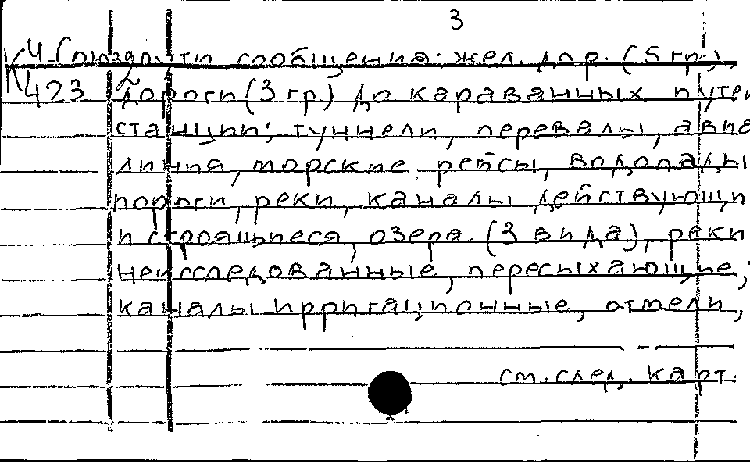 3
К4 Союза. пути сообщения: жел. дор. (5 гр.),
423 2 дороги (3 гр.) до караванных путе
станции; туннели, перевалы, авиа
линия, морские рейсы, водопады
пороги, реки, каналы действующи
и строящиеся, озера. (3 вида), реки
неисследованные, пересыхающие,
каналы ирригационные, отмели,
см. след. карт.